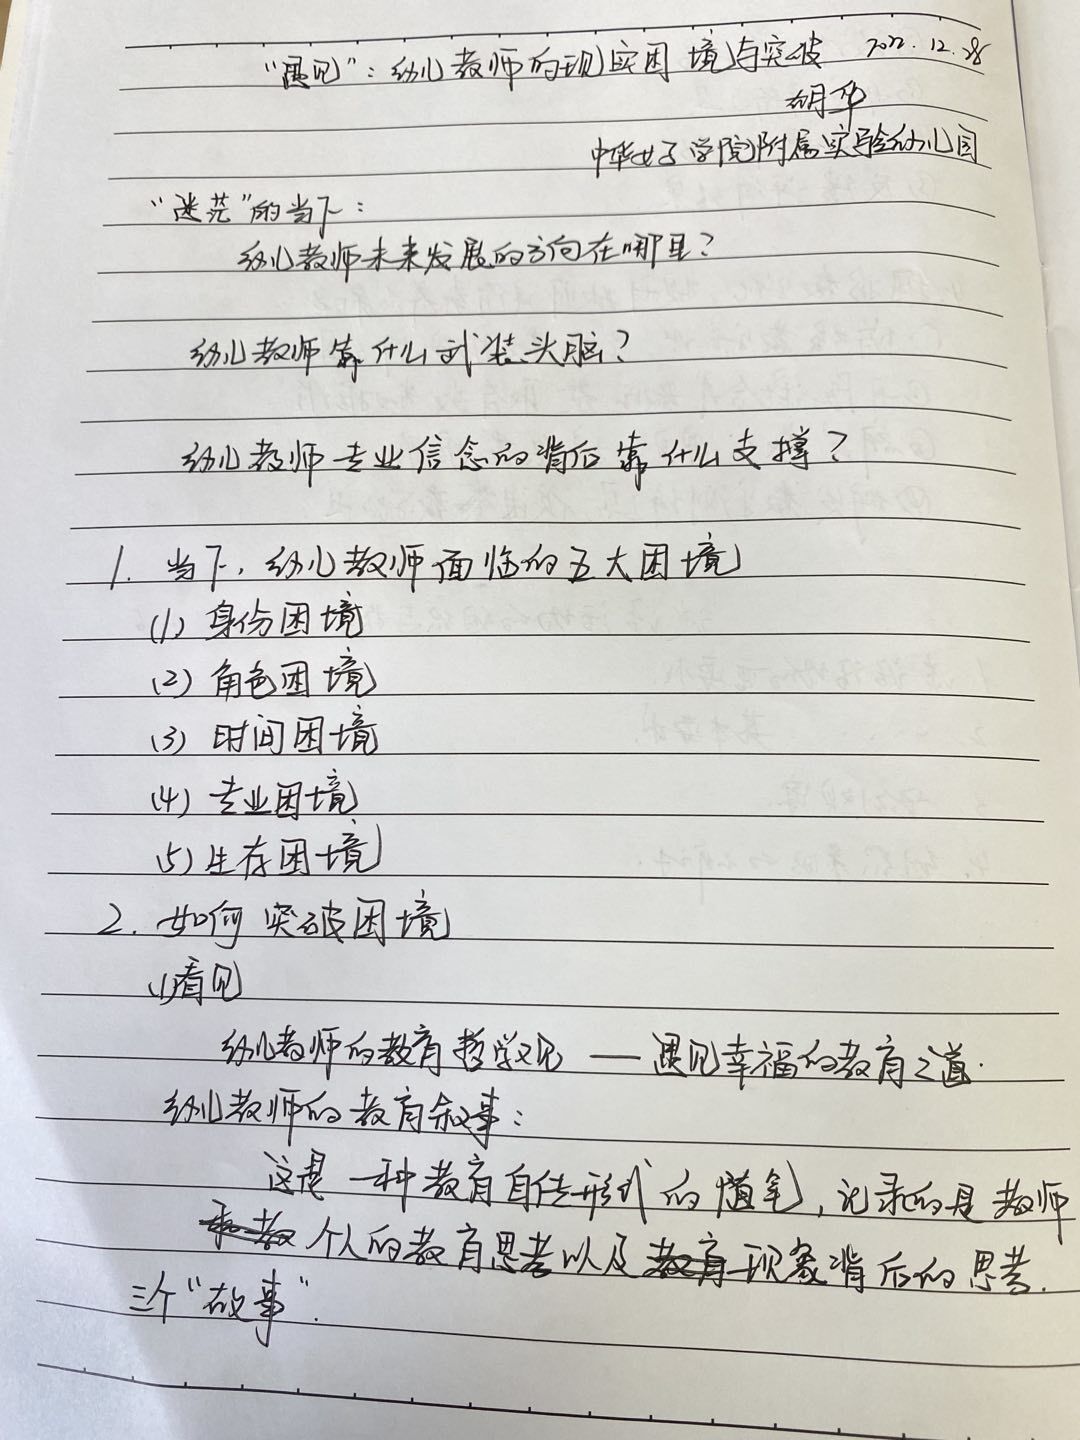 “遇见”：幼儿教师的现实困境与突破 2022.12.28
胡华
中华女子学院附属实验幼儿园
“迷茫”的当下：
幼儿教师未来发展的方向在哪里？
幼儿教师靠什么武装头脑？
幼儿教师专业信念的背后靠什么支撑？
1. 当下，幼儿教师面临的五大困境
(1) 身份困境
(2) 角色困境
(3) 时间困境
(4) 专业困境
(5) 生存困境
2. 如何突破困境
(1)看见
幼儿教师的教育哲学观 — 遇见幸福的教育之道.
幼儿教师的教育叙事：
这是一种教育自传形式的随笔，记录的是教师
个人的教育思考以及现象背后的思考.
三个“故事”.